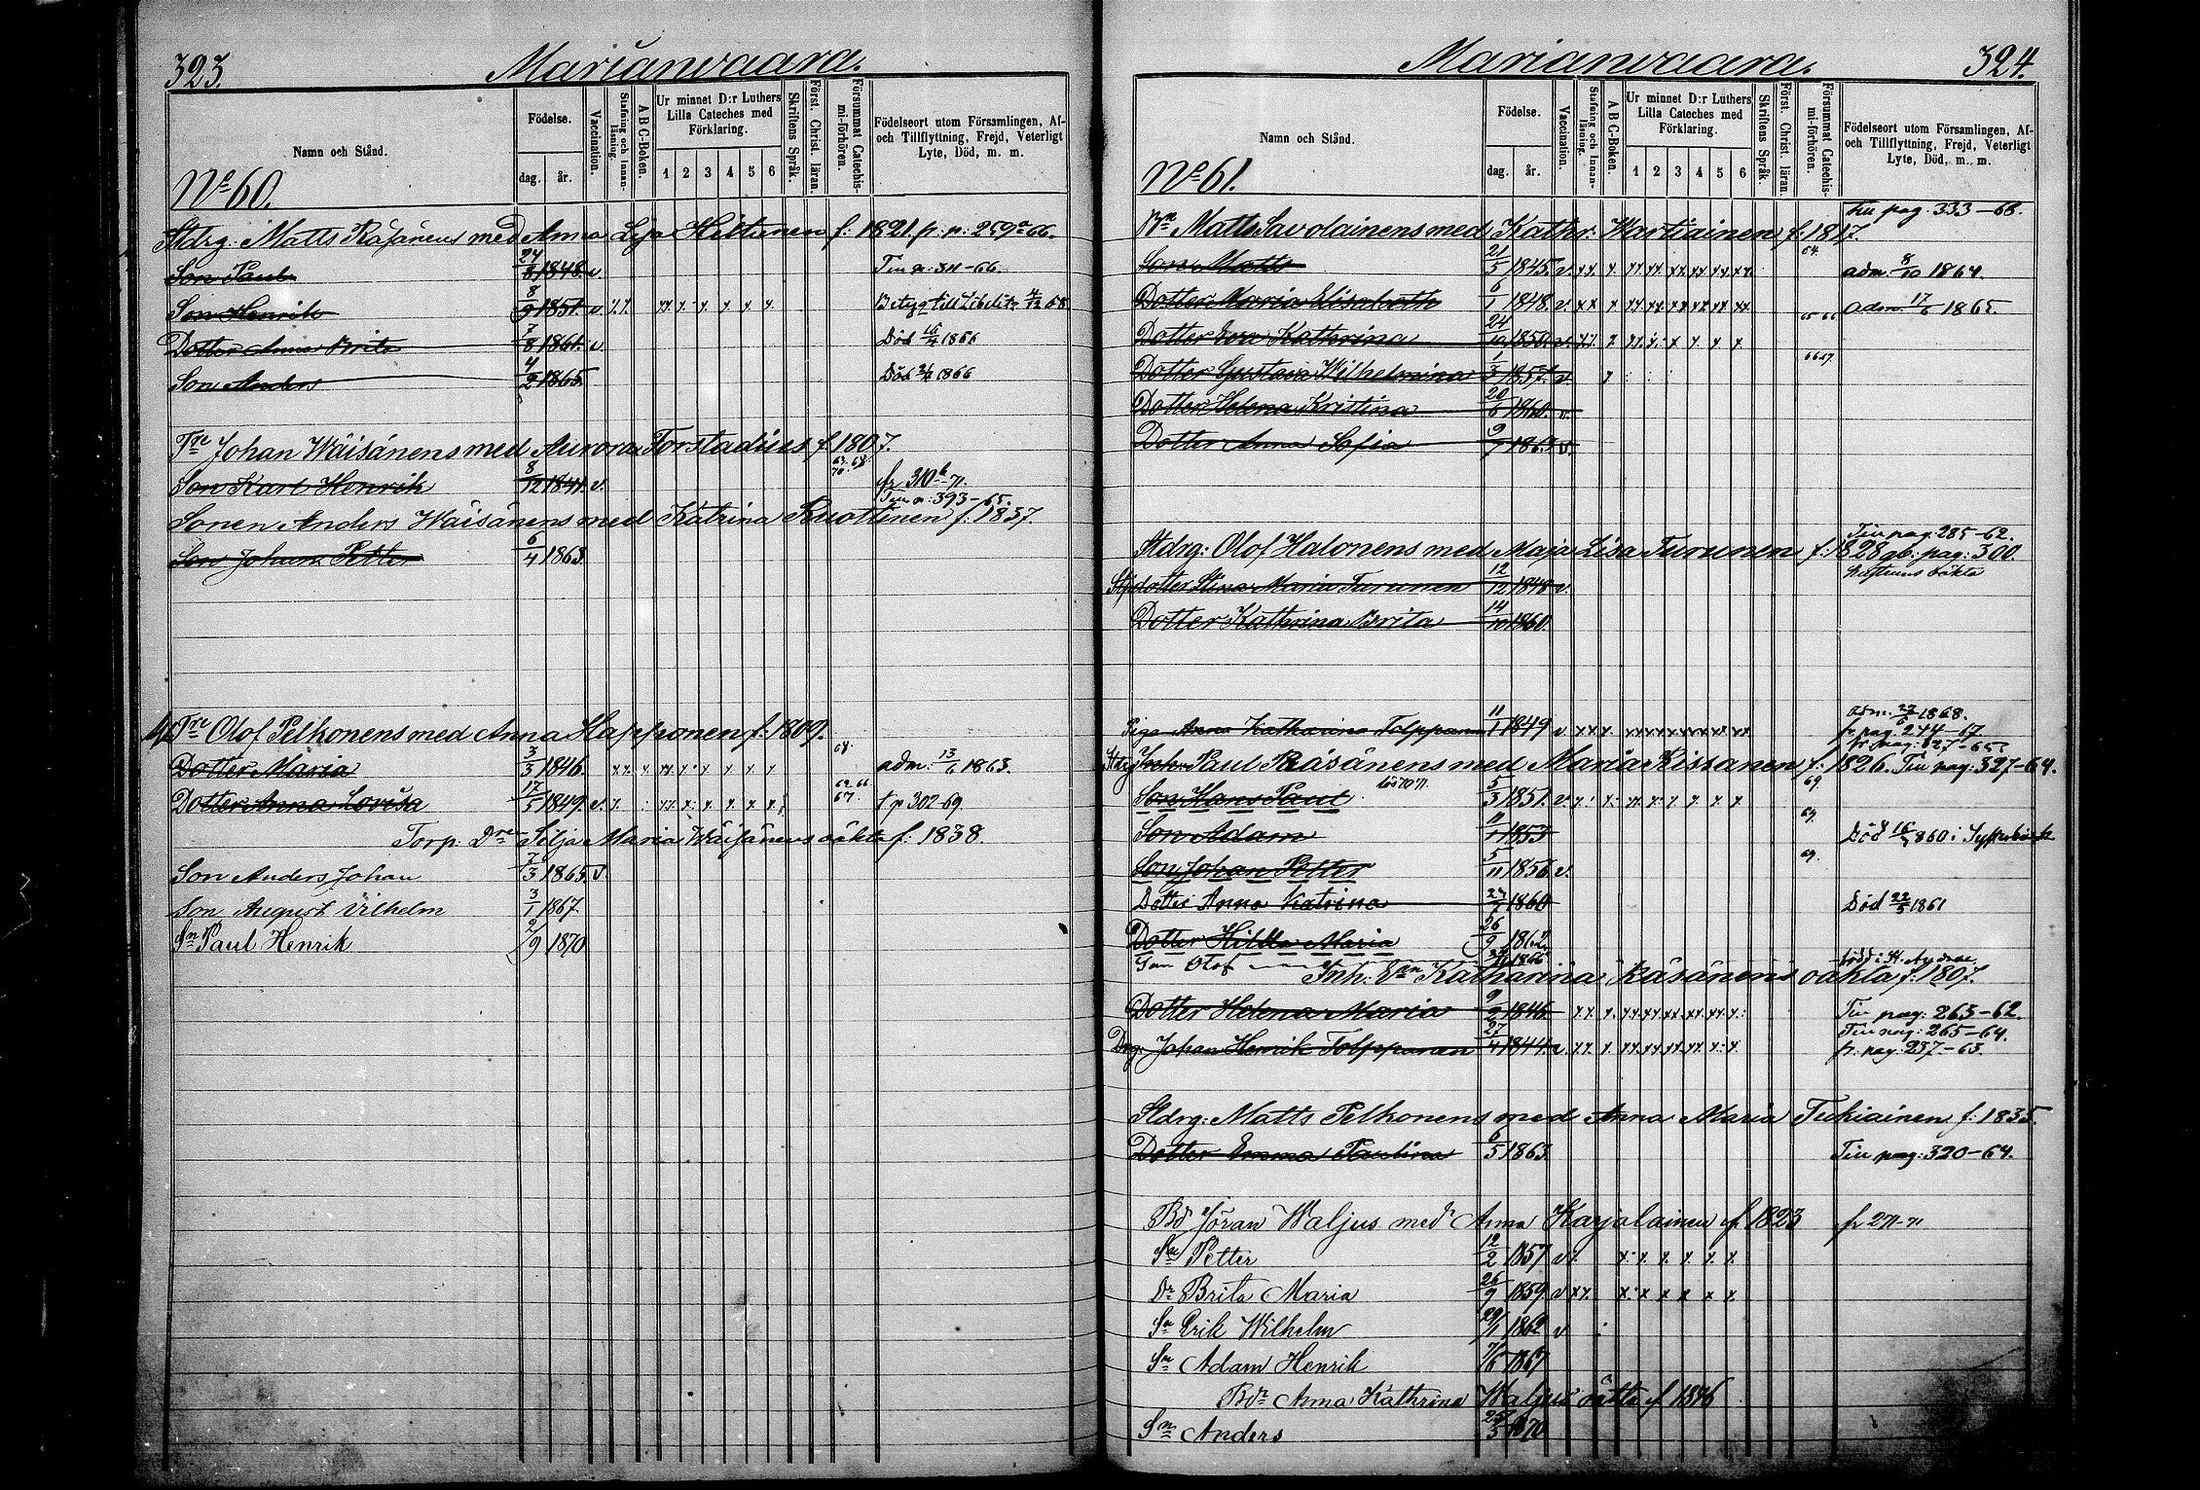 323. Marianvaara.
Namn och Stånd.
Födelse.
dag. år.
Vaccination.
Stafning och Innanläsning.
A B C-Boken.
Ur minnet D:r Luthers Lilla Cateches med Förklaring.
1 2 3 4 5 6
Skriftens Språk.
Först. Christ. läran.
Försummat Catechismi-förhören.
Födelseort utom Församlingen, Af- och Tillflyttning, Frejd, Veterligt Lyte, Död, m. m.
No 60.
Stdrg: Matts Räsänens med Anna Lisa Hiltunen f: 1821
Son Paul 24/8 1848. v.
Son Henrik 8/9 1851. v.
Dotter Anna Brita 7/8 1861. v. Död 16/4 1866
Son Anders 4/2 1865. Död 1866
Tre Johan Wäisänens med Aurora Forstadius f. 1807.
Son Karl Henrik 8/12 1841. v. fr 310 b-71.
Tiu p: 393-65.
Sonen Anders Wäisänens med Katrina Ruottinen f: 1837.
Son Johan Petter 6/4 1863.
Tre Olof Pelkonens med Anna Happonen f. 1809.
Dotter Maria 3/3 1846. 68. adm. 13/6 1863.
Dotter Anna Lovisa 17/5 1849. v. 67. t p 302-69.
Torp. Dr Silja Maria Wäisänens oäkta f: 1838.
Son Anders Johan 7/3 1865 v.
Son August Vilhelm 3/1 1867
Sn Paul Henrik 2/9 1870
Marianvaara. 324.
Namn och Stånd.
Födelse.
dag. år.
Vaccination.
Stafning och Innanläsning.
A B C-Boken.
Ur minnet D:r Luthers Lilla Cateches med Förklaring.
1 2 3 4 5 6
Skriftens Språk.
Först. Christ. läran.
Försummat Catechismi-förhören.
Födelseort utom Församlingen, Af- och Tillflyttning, Frejd, Veterligt Lyte, Död, m. m.
No 61.
Tiu pag. 333-68.
Matts Savolainens med Kathr. Wartiainen f. 1817.
Son Matts 21/5 1845. v. 64. adm. 8/10 1864.
Dotter Maria Elisabeth 6/1 1848. v. adm. 17/6 1865
Dotter Eva Kathrina 24/10 1850. v. 65 66
Dotter Gustava Wilhelmina 1/3 1857. v. 66 67
Dotter Helena Kristina 20/6 1860. v.
Dotter Anna Sofia 9/7 1864 v.
Tiu pag: 285-62.
Stdrg: Olof Halonens med Maja Lisa Turunen f: 1828 pag: 300.
hustruns oäkta
Stfdotter Stina Maria Turunen 12/12 1848 v.
Dotter Kathrina Brita 14/10 1860.
adm. 1868.
Piga Anna Katharina Tolppanen 11/1 1849 v fr pag. 244-67
fr. pag: 627-65
Stdrg Paul Räsänens med Maria Kissanen f: 1826. Tiu pag: 327-64.
Son Hans Paul 5/3 1851. v. 69.
Son Adam 11/1 1853 69. Död 16/5 1860 i
Son Johan Petter 5/11 1856 v. 69.
Dotter Anna Katrina 1860 Död 22/5 1861
Dotter Hilda Maria 26/9 1862
Son Olof 1866
Inh: Katharina Räsänens oäkta f: 1807.
Dotter Helena Maria 9/2 1846 Tiu pag: 263-62.
Tiu pag: 265-64.
Drg: Johan Henrik Tolppanen 27/4 1844 v. fr. pag: 237-63.
Stdrg: Matts Pelkonens med Anna Maria Tukiainen f: 1835.
Dotter Emma Paulina 6/5 1863. Tiu pag: 320-64.
Bd Jöran Waljus med Anna Karjalainen f 1823 fr 271-71
Sn Petter 12/2 1857 v
Dr Brita Maria 26/9 1859. v
Sn Erik Wilhelm 1862 v
Sn Adam Henrik 7/6 1867
Bdr Anna Kathrina Waljus oäkta f 1846
Sn Anders 25/3 1870